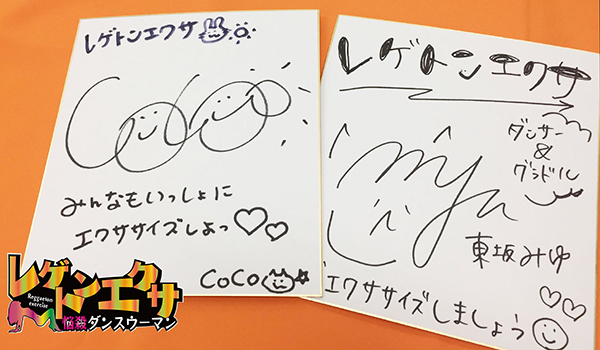 レゲトンエクサ
CoCo
みんなもいっしょに
エクササイズしよっ♡♡
CoCo
レゲトンエクサ
ダンサー
&
グラドル
miyu
東坂みゆ
エクササイズしましょう
レゲトンエクサ
Reggaeton
exercise
悩殺ダンスウーマン